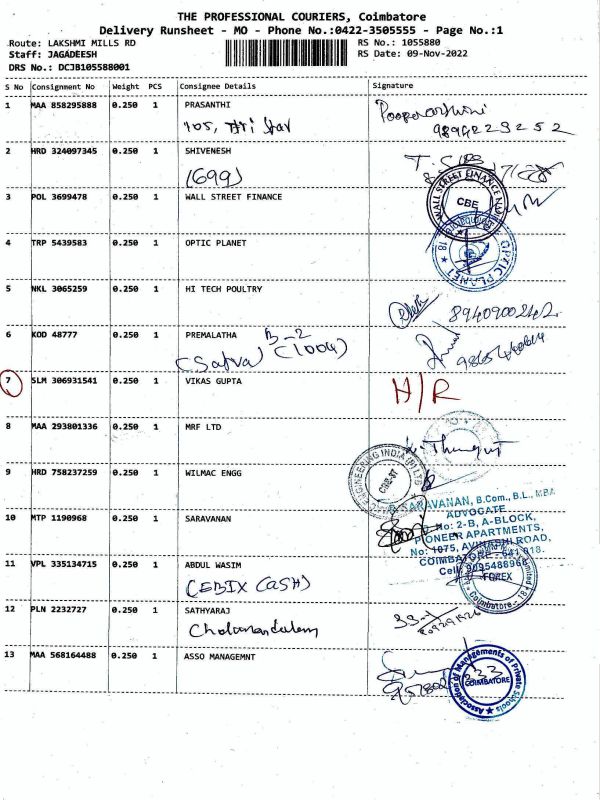 THE PROFESSIONAL COURIERS, Coimbatore
Delivery Runsheet - MO - Phone No.:0422-3505555 - Page No.:1
Route: LAKSHMI MILLS RD
Staff: JAGADEESH
DRS No.: DCJB105588001
RS No.: 1055880
RS Date: 09-Nov-2022
S No Consignment No Weight PCS Consignee Details Signature
1 MAA 858295888 0.250 1 PRASANTHI
705, Hri Star
9894223252
2 HRD 324097345 0.250 1 SHIVENESH
(699)
3 POL 3699478 0.250 1 WALL STREET FINANCE
WALL STREET FINANCE
CBE
4 TRP 5439583 0.250 1 OPTIC PLANET
OPTIC PLANET
18
5 NKL 3065259 0.250 1 HI TECH POULTRY
8940900242
6 KOD 48777 0.250 1 PREMALATHA
B-2
(Satva) (1004)
7 SLM 306931541 0.250 1 VIKAS GUPTA
H/R
8 MAA 293801336 0.250 1 MRF LTD
9 HRD 758237259 0.250 1 WILMAC ENGG
ENGINEERING INDIA (P) LTD
CBE-37
10 MTP 1190968 0.250 1 SARAVANAN
SARAVANAN, B.Com., B.L., MBA
ADVOCATE
No: 2-B, A-BLOCK,
PIONEER APARTMENTS,
No: 1075, AVINASHI ROAD,
COIMBATORE - 641 018.
Cell: 9095488968
11 VPL 335134715 0.250 1 ABDUL WASIM
(EBIX CASH)
FOREX
Limited
Coimbatore - 18
12 PLN 2232727 0.250 1 SATHYARAJ
Cholamandalam
13 MAA 568164488 0.250 1 ASSO MANAGEMNT
Association of Managements of Private Schools
COIMBATORE